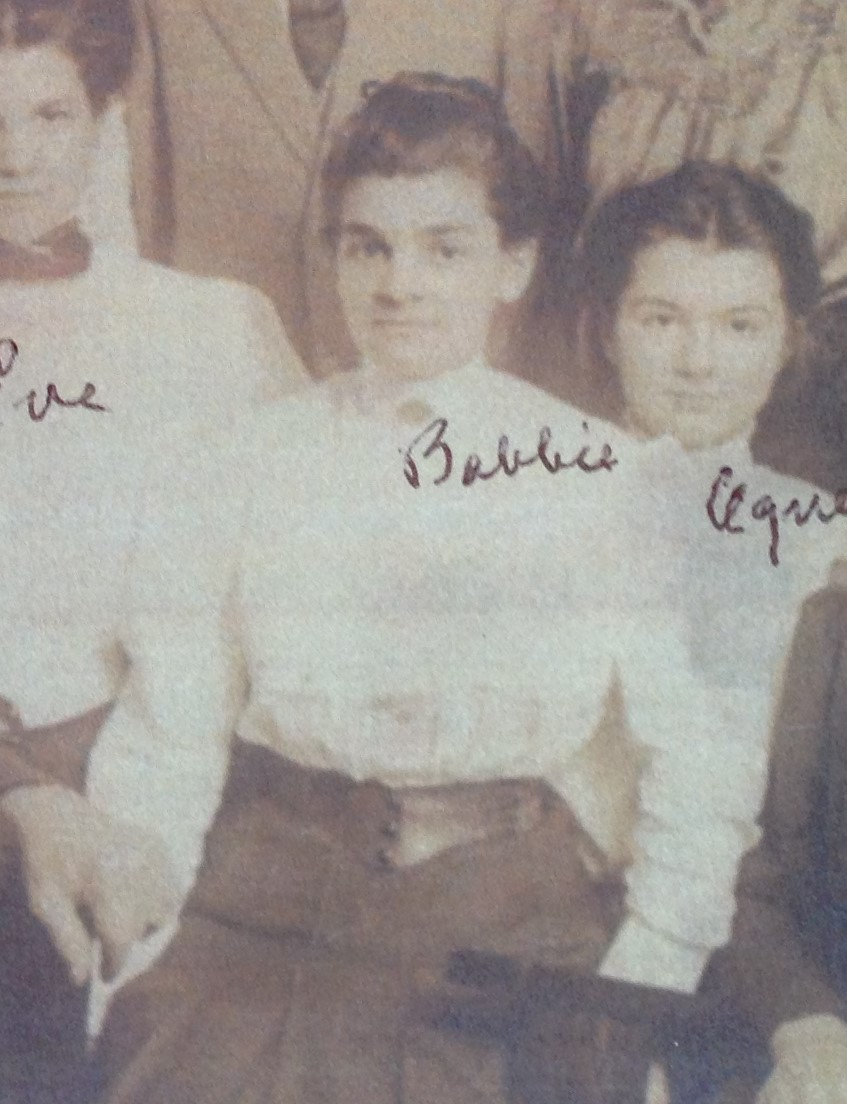 Eve
Bobbie
Agne